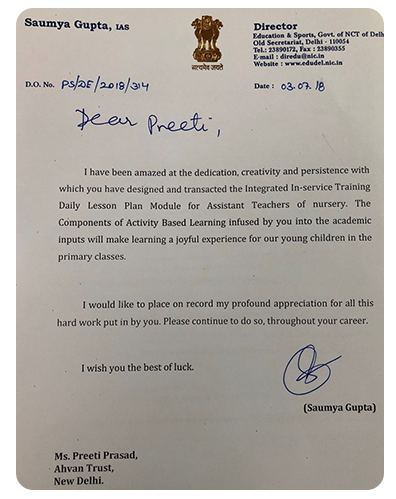 Saumya Gupta, IAS
सत्यमेव जयते
Director
Education & Sports, Govt. of NCT of Delh
Old Secretariat, Delhi - 110054
Tel.: 23890172, Fax : 23890355
E-mail : diredu@nic.in
Website : www.edudel.nic.in
D.O. No. PS/DE/2018/314
Date : 03.07.18
Dear Preeti,
I have been amazed at the dedication, creativity and persistence with
which you have designed and transacted the Integrated In-service Training
Daily Lesson Plan Module for Assistant Teachers of nursery. The
Components of Activity Based Learning infused by you into the academic
inputs will make learning a joyful experience for our young children in the
primary classes.
I would like to place on record my profound appreciation for all this
hard work put in by you. Please continue to do so, throughout your career.
I wish you the best of luck.
(Saumya Gupta)
Ms. Preeti Prasad,
Ahvan Trust,
New Delhi.